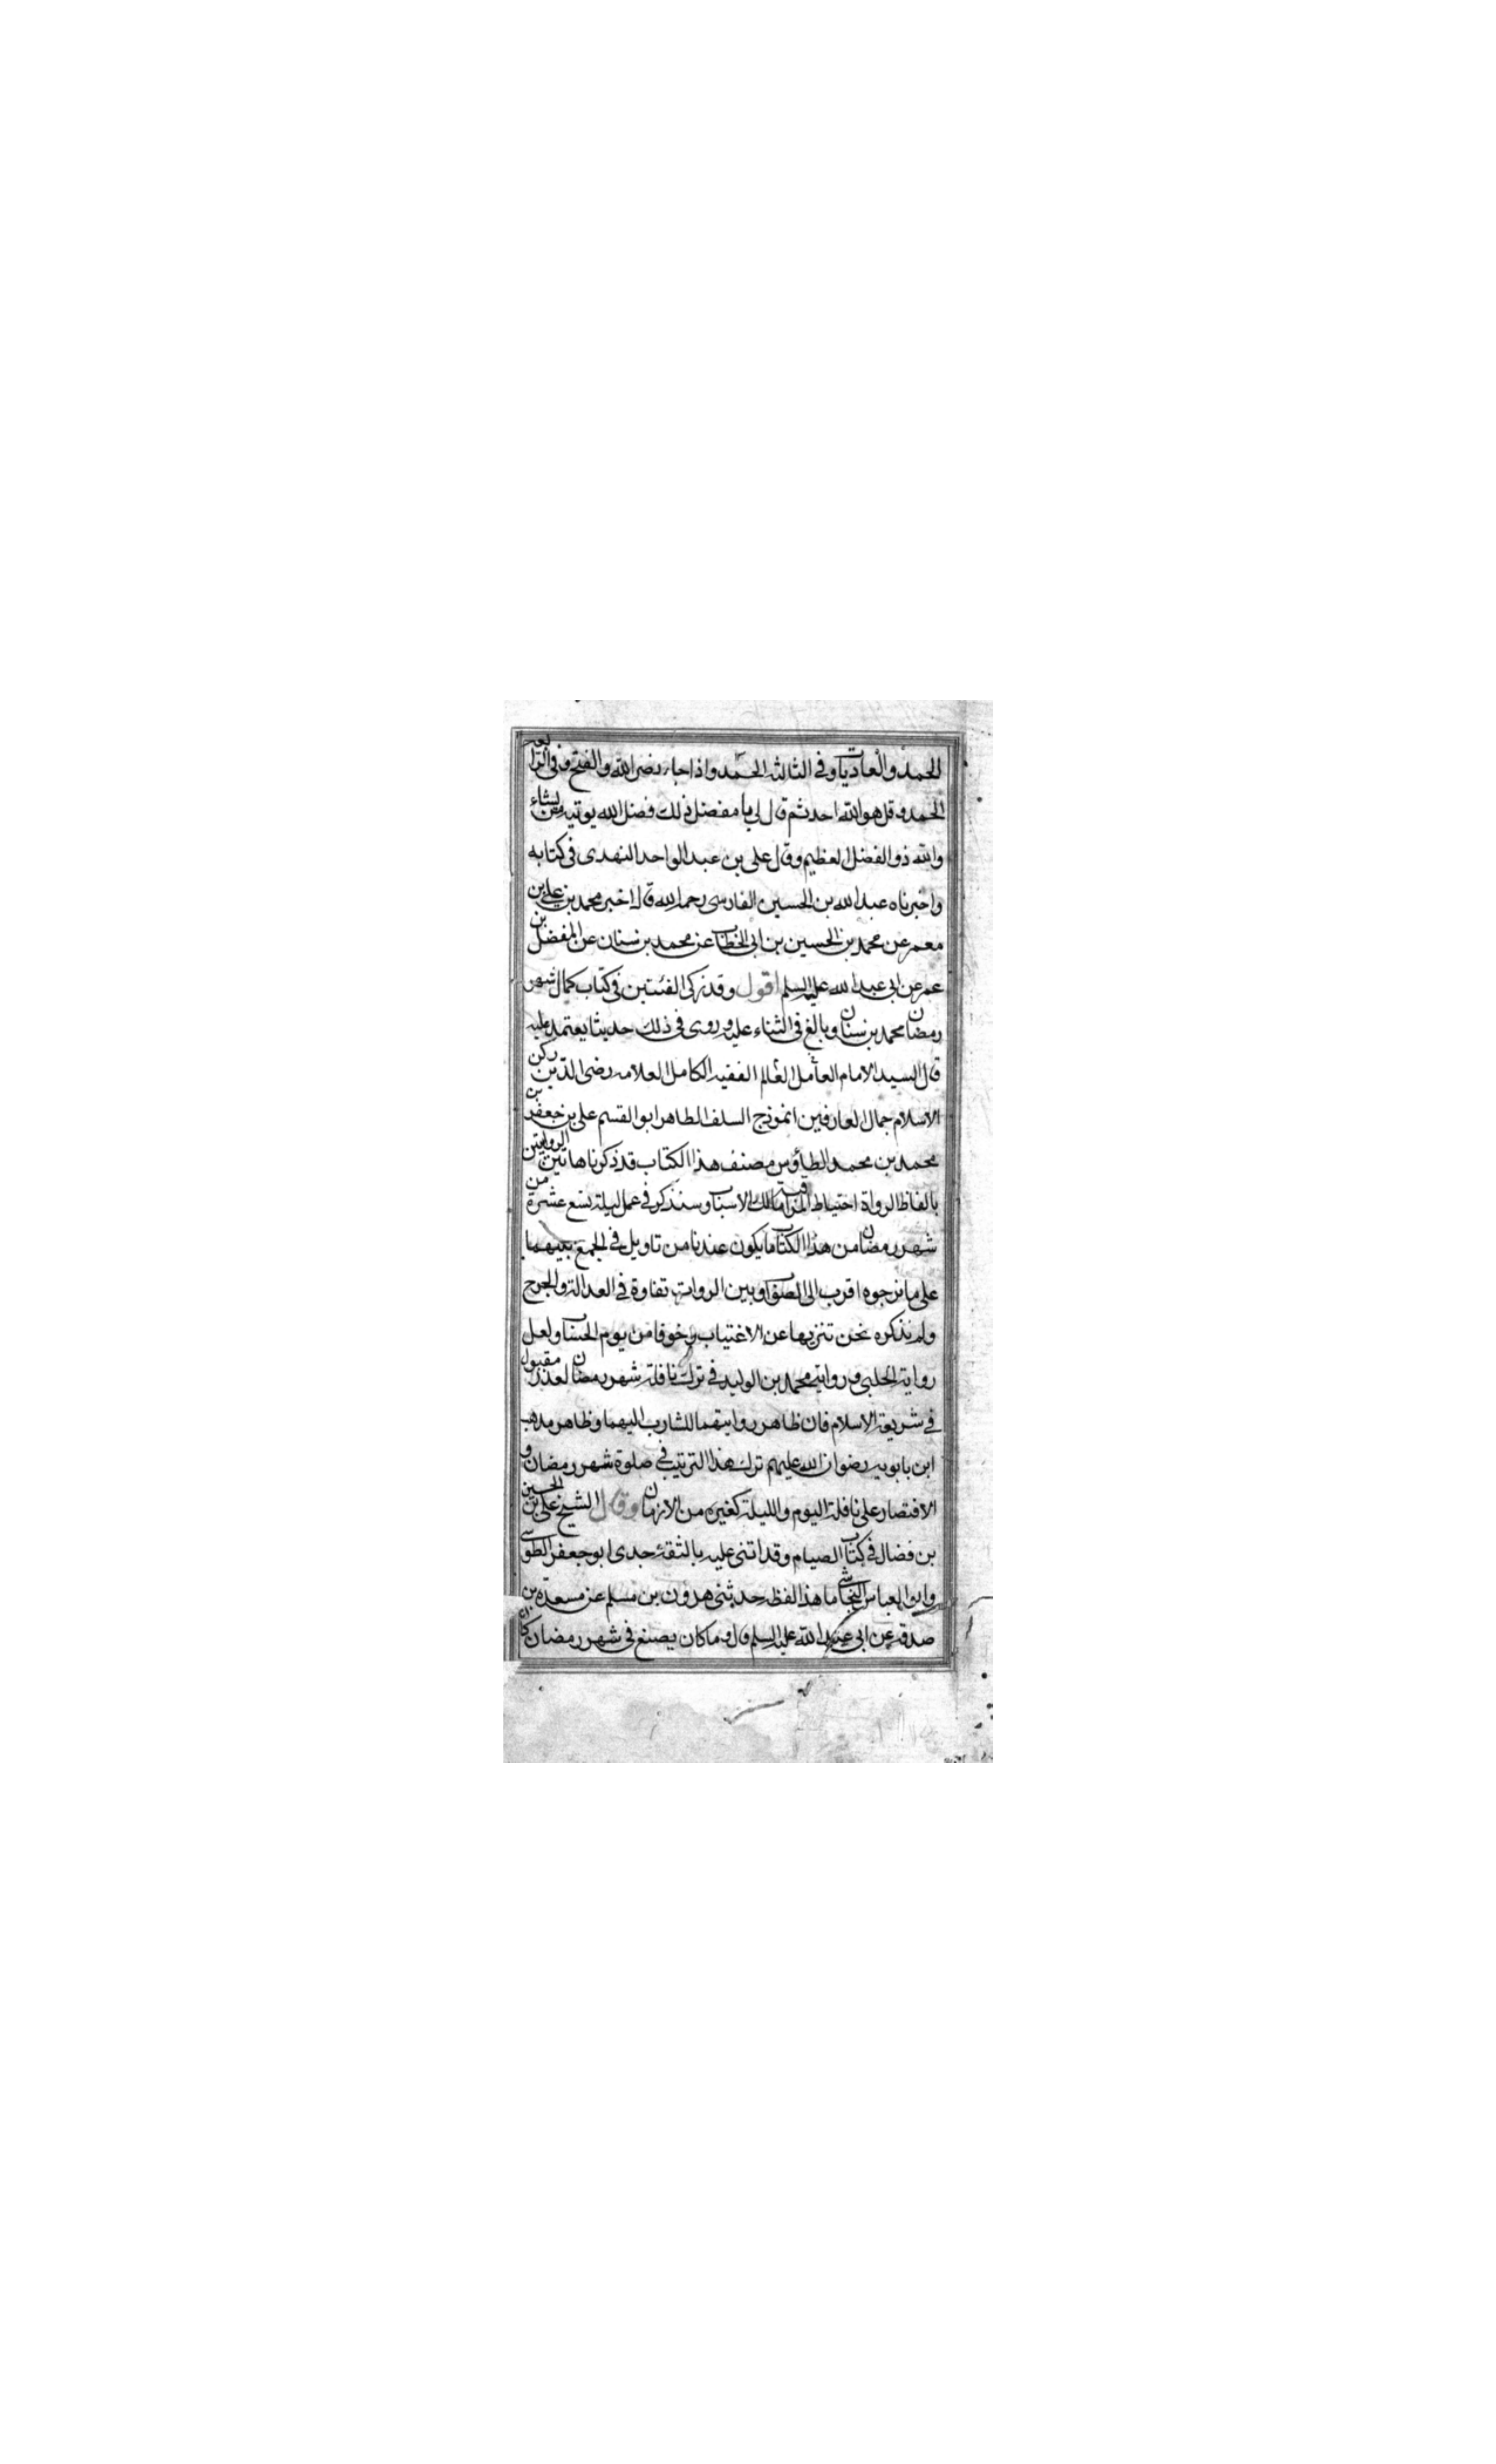 الحمد والعاديات وفى الثالثه الحمد واذا جاء نصر الله والفتح وفى الرابعه
الحمد وقل هو الله احد ثم قال لى يا مفضل ذلك فضل الله يوتيه من يشاء
والله ذو الفضل العظيم وقال على بن عبد الواحد النهدى فى كتابه
واخبرناه عبد الله بن الحسين الفارسى رحمه الله قال اخبر محمد بن على بن
معمر عن محمد بن الحسين بن ابى الخطاب عن محمد بن سنان عن المفضل بن
عمر عن ابى عبد الله عليه السلم اقول وقد زكى الفئتين فى كتاب كمال شهر
رمضان محمد بن سنان وبالغ فى الثناء عليه وروى فى ذلك حديثا يعتمد عليه
قال السيد الامام العامل العالم الفقيه الكامل العلامه رضى الدين ركن
الاسلام جمال العارفين انموذج السلف الطاهر ابو القسم على بن جعفر بن
محمد بن محمد الطاوس مصنف هذا الكتاب قد ذكرنا هاتين الروايتين
بالفاظ الرواة احتياط المراقبة مالك الاسباب وسنذكر فى عمل ليلة تسع عشرة من
شهر رمضان من هذا الكتاب ما يكون عندنا من تاويل فى الجمع بينهما
على ما نرجوه اقرب الى الصواب وبين الروايتين تفاوة فى العدالة والجرح
ولم نذكره نحن تنزيها عن الاغتياب وخوفا من يوم الحساب ولعل
رواية الحلبى ورواية محمد بن الوليد فى ترك نافلة شهر رمضان لعذر مقبول
فى شريعة الاسلام فان ظاهر روايتهما لشارب اليهما وظاهر مذهب
ابن بابويه رضوان الله عليهم ترك هذا الترتيب فى صلوة شهر رمضان و
الاقتصار على نافلة اليوم والليلة كغيره من الازمان وقال الشيخ على بن الحسين
بن فضال فى كتاب الصيام وقد اثنى عليه بالثقة جدى ابو جعفر الطوسى
وابو العباس النجاشى ما هذا لفظه حدثنى هرون بن مسلم عن مسعدة بن
صدقه عن ابى عبد الله عليه السلم قال وما كان يصنع فى شهر رمضان كان